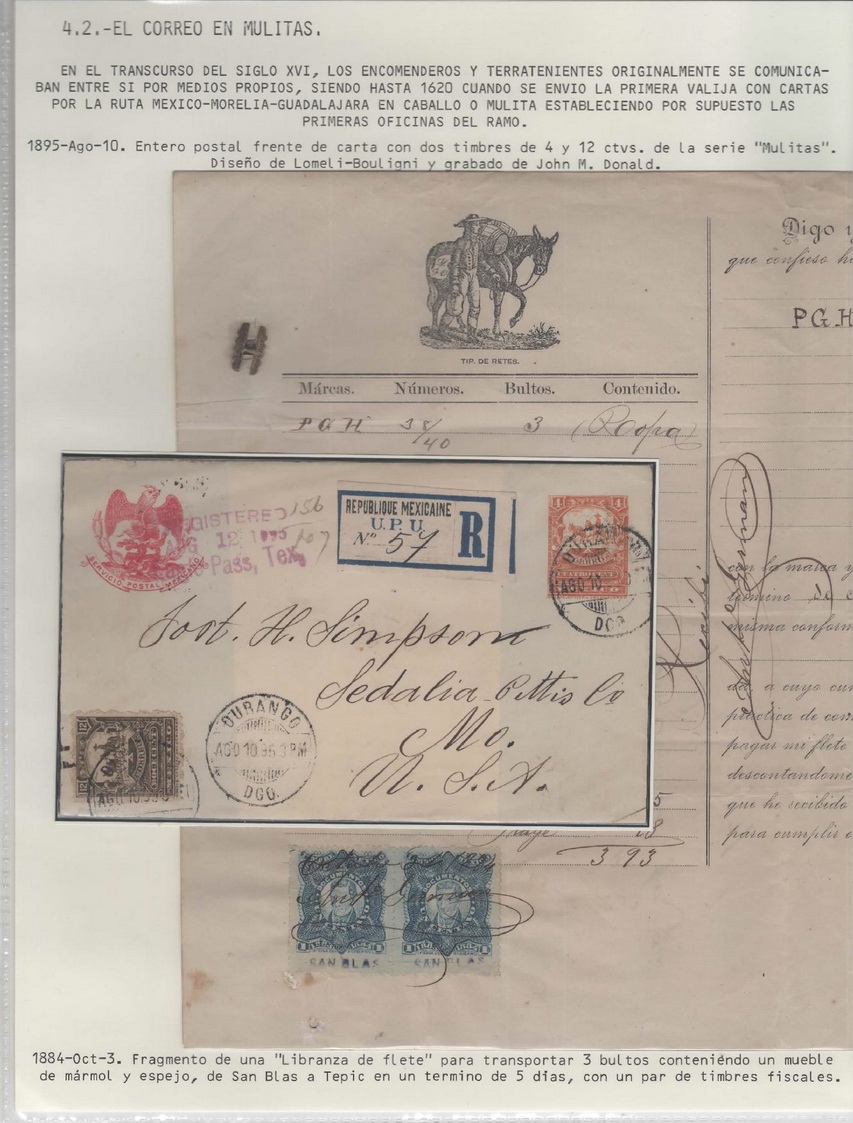 4.2.-EL CORREO EN MULITAS.
EN EL TRANSCURSO DEL SIGLO XVI, LOS ENCOMENDEROS Y TERRATENIENTES ORIGINALMENTE SE COMUNICA-
BAN ENTRE SI POR MEDIOS PROPIOS, SIENDO HASTA 1620 CUANDO SE ENVIO LA PRIMERA VALIJA CON CARTAS
POR LA RUTA MEXICO-MORELIA-GUADALAJARA EN CABALLO O MULITA ESTABLECIENDO POR SUPUESTO LAS
PRIMERAS OFICINAS DEL RAMO.
1895-Ago-10. Entero postal frente de carta con dos timbres de 4 y 12 ctvs. de la serie "Mulitas".
Diseño de Lomeli-Bouligni y grabado de John M. Donald.
TIP. DE RETES.
Márcas. Números. Bultos. Contenido.
PGH 38/40 3 (Ropa)
Digo y
que confieso h
PGH
con la marca y
termino de
misma conform
da, a cuyo cum
práctica de com
pagar mi flete
descontandome
que he recibido
para cumplir
Recibí
SERVICIO POSTAL MEXICANO
REGISTERED
AUG 12 1895
Pass, Tex.
156
107
REPUBLIQUE MEXICAINE
U.P.U.
No 57
R
4 4
DURANGO
AGO 10
DGO.
Post. H. Simpson
Sedalia Pettis Co
Mo.
U. S. A.
12 12
DURANGO
AGO 10 95 3 PM
DGO.
AGO 10 95
3 93
DOCUMENTOS DOCUMENTOS
SAN BLAS SAN BLAS
1884-Oct-3. Fragmento de una "Libranza de flete" para transportar 3 bultos conteniéndo un mueble
de mármol y espejo, de San Blas a Tepic en un termino de 5 dias, con un par de timbres fiscales.